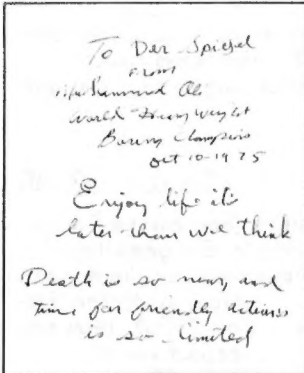 To Der Spiegel
From
Muhammad Ali
World Heavy Weight
Boxing Champion
Oct 10-1975
Enjoy life it's
later than we think
Death is so near, and
time for friendly actions
is so limited